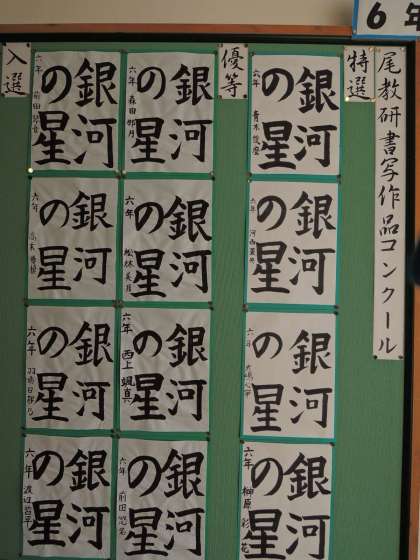 6年
尾教研書写作品コンクール
特選
優等
銀河
の星
六年
銀河
の星
六年
銀河
の星
六年
銀河
の星
六年
榊原彩花
銀河
の星
六年
森田
銀河
の星
六年
松林美月
銀河
の星
六年
西上颯真
銀河
の星
六年
前田悠
入選
銀河
の星
六年
前田
銀河
の星
六年
銀河
の星
六年
銀河
の星
六年
渡辺哲平